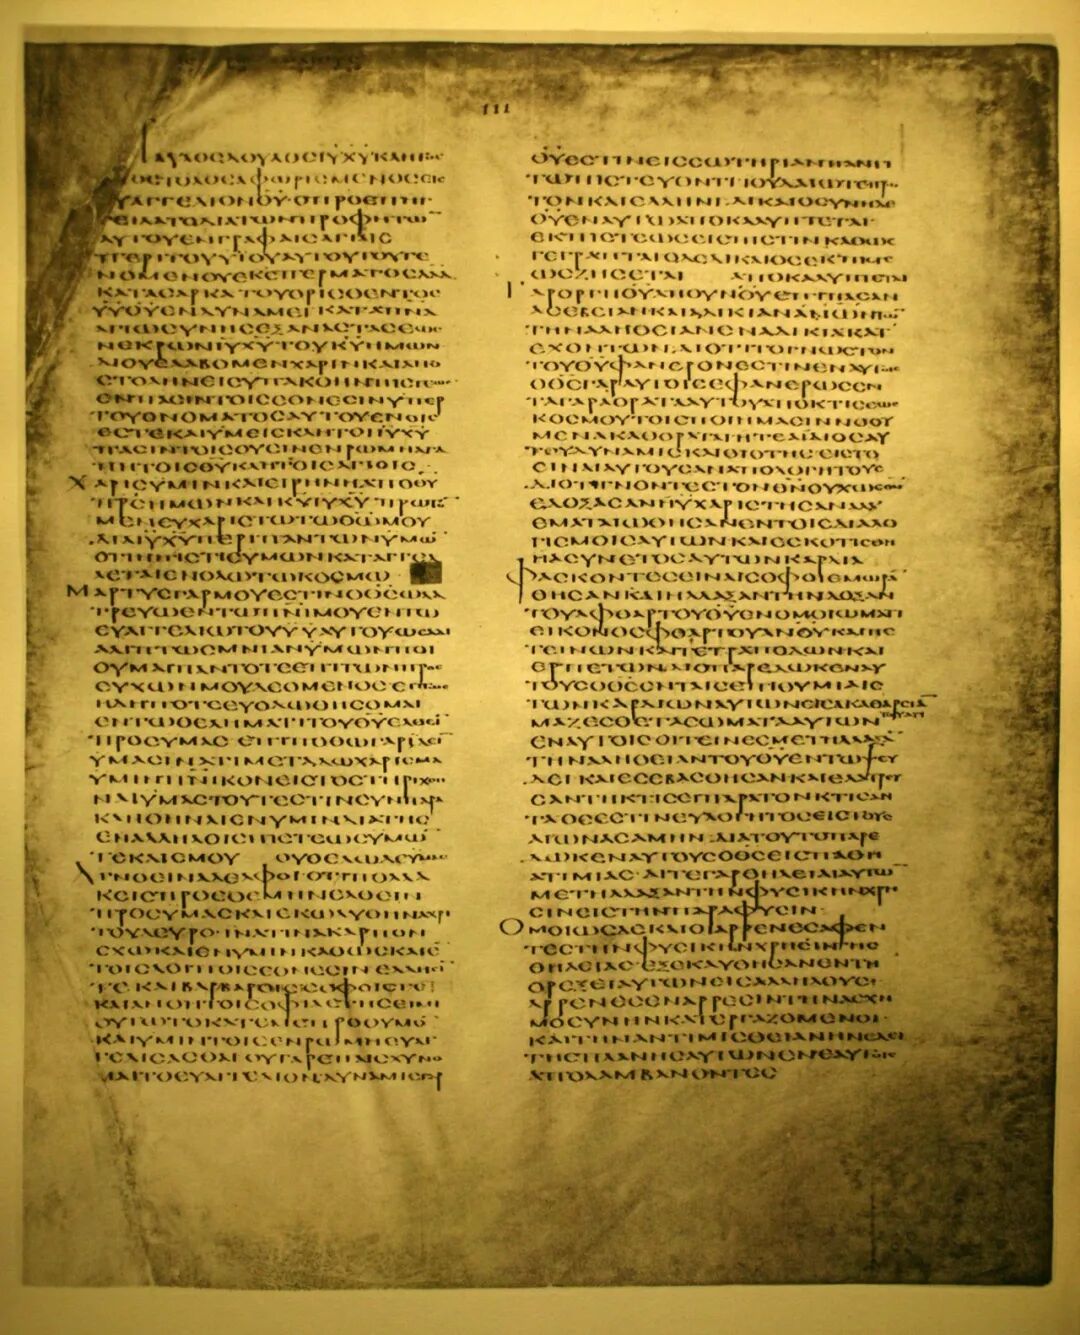 ΠΑΥΛΟΣ ΔΟΥΛΟΣ ΙΥ ΧΥ ΚΛΗΤΟΣ
ΑΠΟΣΤΟΛΟΣ ΑΦΩΡΙΣΜΕΝΟΣ ΕΙΣ
ΕΥΑΓΓΕΛΙΟΝ ΘΥ Ο ΠΡΟΕΠΗΓΓΙ
ΛΑΤΟ ΔΙΑ ΤΩΝ ΠΡΟΦΗΤΩ
ΑΥΤΟΥ ΕΝ ΓΡΑΦΑΙΣ ΑΓΙΑΙΣ
ΠΕΡΙ ΤΟΥ ΥΥ ΑΥΤΟΥ ΤΟΥ ΓΕ
ΝΟΜΕΝΟΥ ΕΚ ΣΠΕΡΜΑΤΟΣ ΔΑΔ
ΚΑΤΑ ΣΑΡΚΑ ΤΟΥ ΟΡΙΣΘΕΝΤΟΣ
ΥΥ ΘΥ ΕΝ ΔΥΝΑΜΕΙ ΚΑΤΑ ΠΝΑ
ΑΓΙΩΣΥΝΗΣ ΕΞ ΑΝΑΣΤΑΣΕΩΣ
ΝΕΚΡΩΝ ΙΥ ΧΥ ΤΟΥ ΚΥ ΗΜΩΝ
ΔΙ ΟΥ ΕΛΑΒΟΜΕΝ ΧΑΡΙΝ ΚΑΙ ΑΠΟ
ΣΤΟΛΗΝ ΕΙΣ ΥΠΑΚΟΗΝ ΠΙΣΤΕΩΣ
ΕΝ ΠΑΣΙΝ ΤΟΙΣ ΕΘΝΕΣΙΝ ΥΠΕΡ
ΤΟΥ ΟΝΟΜΑΤΟΣ ΑΥΤΟΥ ΕΝ ΟΙΣ
ΕΣΤΕ ΚΑΙ ΥΜΕΙΣ ΚΛΗΤΟΙ ΙΥ ΧΥ
ΠΑΣΙΝ ΤΟΙΣ ΟΥΣΙΝ ΕΝ ΡΩΜΗ ΑΓΑ
ΠΗΤΟΙΣ ΘΥ ΚΛΗΤΟΙΣ ΑΓΙΟΙΣ
ΧΑΡΙΣ ΥΜΙΝ ΚΑΙ ΕΙΡΗΝΗ ΑΠΟ ΘΥ
ΠΡΣ ΗΜΩΝ ΚΑΙ ΚΥ ΙΥ ΧΥ ΠΡΩΤΟ
ΜΕΝ ΕΥΧΑΡΙΣΤΩ ΤΩ ΘΩ ΜΟΥ
ΔΙΑ ΙΥ ΧΥ ΠΕΡΙ ΠΑΝΤΩΝ ΥΜΩ
ΟΤΙ Η ΠΙΣΤΙΣ ΥΜΩΝ ΚΑΤΑΓΓΕΛ
ΛΕΤΑΙ ΕΝ ΟΛΩ ΤΩ ΚΟΣΜΩ
ΜΑΡΤΥΣ ΓΑΡ ΜΟΥ ΕΣΤΙΝ Ο ΘΣ Ω ΛΑ
ΤΡΕΥΩ ΕΝ ΤΩ ΠΝΙ ΜΟΥ ΕΝ ΤΩ
ΕΥΑΓΓΕΛΙΩ ΤΟΥ ΥΥ ΑΥΤΟΥ ΩΣ ΑΔΙ
ΑΛΙΠΤΩΣ ΜΝΙΑΝ ΥΜΩΝ ΠΟΙ
ΟΥΜΑΙ ΠΑΝΤΟΤΕ ΕΠΙ ΤΩΝ ΠΡΟΣ
ΕΥΧΩΝ ΜΟΥ ΔΕΟΜΕΝΟΣ ΕΙ ΠΩΣ
ΗΔΗ ΠΟΤΕ ΕΥΟΔΩΘΗΣΟΜΑΙ
ΕΝ ΤΩ ΘΕΛΗΜΑΤΙ ΤΟΥ ΘΥ ΕΛΘΕΙ
ΠΡΟΣ ΥΜΑΣ ΕΠΙΠΟΘΩ ΓΑΡ ΙΔΕΙ
ΥΜΑΣ ΙΝΑ ΤΙ ΜΕΤΑΔΩ ΧΑΡΙΣΜΑ
ΥΜΙΝ ΠΝΙΚΟΝ ΕΙΣ ΤΟ ΣΤΗΡΙΧΘΗ
ΝΑΙ ΥΜΑΣ ΤΟΥΤΕΣΤΙΝ ΣΥΝΠΑΡΑ
ΚΛΗΘΗΝΑΙ ΕΝ ΥΜΙΝ ΔΙΑ ΤΗΣ
ΕΝ ΑΛΛΗΛΟΙΣ ΠΙΣΤΕΩΣ ΥΜΩ
ΤΕ ΚΑΙ ΕΜΟΥ ΟΥ ΘΕΛΩ ΔΕ ΥΜΑΣ
ΑΓΝΟΕΙΝ ΑΔΕΛΦΟΙ ΟΤΙ ΠΟΛΛΑ
ΚΕΙΣ ΠΡΟΕΘΕΜΗΝ ΕΛΘΕΙΝ
ΠΡΟΣ ΥΜΑΣ ΚΑΙ ΕΚΩΛΥΘΗΝ ΑΧΡΙ
ΤΟΥ ΔΕΥΡΟ ΙΝΑ ΤΙΝΑ ΚΑΡΠΟΝ
ΣΧΩ ΚΑΙ ΕΝ ΥΜΙΝ ΚΑΘΩΣ ΚΑΙ Ε
ΤΟΙΣ ΛΟΙΠΟΙΣ ΕΘΝΕΣΙΝ ΕΛΛΗΣΙ
ΤΕ ΚΑΙ ΒΑΡΒΑΡΟΙΣ ΣΟΦΟΙΣ ΤΕ
ΚΑΙ ΑΝΟΗΤΟΙΣ ΟΦΙΛΕΤΗΣ ΕΙΜΙ
ΟΥΤΩ ΤΟ ΚΑΤ ΕΜΕ ΠΡΟΘΥΜΟ
ΚΑΙ ΥΜΙΝ ΤΟΙΣ ΕΝ ΡΩΜΗ ΕΥΑΓ
ΓΕΛΙΣΑΣΘΑΙ ΟΥ ΓΑΡ ΕΠΑΙΣΧΥΝΟ
ΜΑΙ ΤΟ ΕΥΑΓΓΕΛΙΟΝ ΔΥΝΑΜΙΣ ΓΑΡ
ΘΥ ΕΣΤΙΝ ΕΙΣ ΣΩΤΗΡΙΑΝ ΠΑΝΤΙ
ΤΩ ΠΙΣΤΕΥΟΝΤΙ ΙΟΥΔΑΙΩ ΤΕ ΠΡΩ
ΤΟΝ ΚΑΙ ΕΛΛΗΝΙ ΔΙΚΑΙΟΣΥΝΗ ΔΕ
ΘΥ ΕΝ ΑΥΤΩ ΑΠΟΚΑΛΥΠΤΕΤΑΙ
ΕΚ ΠΙΣΤΕΩΣ ΕΙΣ ΠΙΣΤΙΝ ΚΑΘΩΣ
ΓΕΓΡΑΠΤΑΙ Ο ΔΕ ΔΙΚΑΙΟΣ ΕΚ ΠΙΣΤΕ
ΩΣ ΖΗΣΕΤΑΙ ΑΠΟΚΑΛΥΠΤΕΤΑΙ
ΓΑΡ ΟΡΓΗ ΘΥ ΑΠ ΟΥΝΟΥ ΕΠΙ ΠΑΣΑΝ
ΑΣΕΒΕΙΑΝ ΚΑΙ ΑΔΙΚΙΑΝ ΑΝΩΝ ΤΩ
ΤΗΝ ΑΛΗΘΕΙΑΝ ΕΝ ΑΔΙΚΙΑ ΚΑΤ
ΕΧΟΝΤΩΝ ΔΙΟΤΙ ΤΟ ΓΝΩΣΤΟΝ
ΤΟΥ ΘΥ ΦΑΝΕΡΟΝ ΕΣΤΙΝ ΕΝ ΑΥΤΟΙΣ
Ο ΘΣ ΓΑΡ ΑΥΤΟΙΣ ΕΦΑΝΕΡΩΣΕΝ
ΤΑ ΓΑΡ ΑΟΡΑΤΑ ΑΥΤΟΥ ΑΠΟ ΚΤΙΣΕΩΣ
ΚΟΣΜΟΥ ΤΟΙΣ ΠΟΙΗΜΑΣΙΝ ΝΟΟΥ
ΜΕΝΑ ΚΑΘΟΡΑΤΑΙ Η ΤΕ ΑΙΔΙΟΣ ΑΥ
ΤΟΥ ΔΥΝΑΜΙΣ ΚΑΙ ΘΙΟΤΗΣ ΕΙΣ ΤΟ
ΕΙΝΑΙ ΑΥΤΟΥΣ ΑΝΑΠΟΛΟΓΗΤΟΥΣ
ΔΙΟΤΙ ΓΝΟΝΤΕΣ ΤΟΝ ΘΝ ΟΥΧ ΩΣ ΘΝ
ΕΔΟΞΑΣΑΝ Η ΥΧΑΡΙΣΤΗΣΑΝ ΑΛΛ
ΕΜΑΤΑΙΩΘΗΣΑΝ ΕΝ ΤΟΙΣ ΔΙΑΛΟ
ΓΙΣΜΟΙΣ ΑΥΤΩΝ ΚΑΙ ΕΣΚΟΤΙΣΘΗ
Η ΑΣΥΝΕΤΟΣ ΑΥΤΩΝ ΚΑΡΔΙΑ
ΦΑΣΚΟΝΤΕΣ ΕΙΝΑΙ ΣΟΦΟΙ ΕΜΩΡΑ
ΘΗΣΑΝ ΚΑΙ ΗΛΛΑΞΑΝ ΤΗΝ ΔΟΞΑΝ
ΤΟΥ ΑΦΘΑΡΤΟΥ ΘΥ ΕΝ ΟΜΟΙΩΜΑΤΙ
ΕΙΚΟΝΟΣ ΦΘΑΡΤΟΥ ΑΝΟΥ ΚΑΙ ΠΕ
ΤΕΙΝΩΝ ΚΑΙ ΤΕΤΡΑΠΟΔΩΝ ΚΑΙ
ΕΡΠΕΤΩΝ ΔΙΟ ΠΑΡΕΔΩΚΕΝ ΑΥ
ΤΟΥΣ Ο ΘΣ ΕΝ ΤΑΙΣ ΕΠΙΘΥΜΙΑΙΣ
ΤΩΝ ΚΑΡΔΙΩΝ ΑΥΤΩΝ ΕΙΣ ΑΚΑΘΑΡΣΙΑ
ΜΑΖΕΣΘΕ ΤΑ ΣΩΜΑΤΑ ΑΥΤΩΝ
ΕΝ ΑΥΤΟΙΣ ΟΙΤΙΝΕΣ ΜΕΤΗΛΛΑΞΑ
ΤΗΝ ΑΛΗΘΕΙΑΝ ΤΟΥ ΘΥ ΕΝ ΤΩ ΨΕΥ
ΔΕΙ ΚΑΙ ΕΣΕΒΑΣΘΗΣΑΝ ΚΑΙ ΕΛΑΤΡΕΥ
ΣΑΝ ΤΗ ΚΤΙΣΕΙ ΠΑΡΑ ΤΟΝ ΚΤΙΣΑΝ
ΤΑ ΟΣ ΕΣΤΙΝ ΕΥΛΟΓΗΤΟΣ ΕΙΣ ΤΟΥΣ
ΑΙΩΝΑΣ ΑΜΗΝ ΔΙΑ ΤΟΥΤΟ ΠΑΡΕ
ΔΩΚΕΝ ΑΥΤΟΥΣ Ο ΘΣ ΕΙΣ ΠΑΘΗ
ΑΤΙΜΙΑΣ ΑΙ ΤΕ ΓΑΡ ΘΗΛΕΙΑΙ ΑΥΤΩ
ΜΕΤΗΛΛΑΞΑΝ ΤΗΝ ΦΥΣΙΚΗΝ ΧΡΗ
ΣΙΝ ΕΙΣ ΤΗΝ ΠΑΡΑ ΦΥΣΙΝ
ΟΜΟΙΩΣ ΔΕ ΚΑΙ ΟΙ ΑΡΡΕΝΕΣ ΑΦΕΝ
ΤΕΣ ΤΗΝ ΦΥΣΙΚΗΝ ΧΡΗΣΙΝ ΤΗΣ
ΘΗΛΕΙΑΣ ΕΞΕΚΑΥΘΗΣΑΝ ΕΝ ΤΗ
ΟΡΕΞΕΙ ΑΥΤΩΝ ΕΙΣ ΑΛΛΗΛΟΥΣ
ΑΡΡΕΝΕΣ ΕΝ ΑΡΡΕΣΙΝ ΤΗΝ ΑΣΧΗ
ΜΟΣΥΝΗΝ ΚΑΤΕΡΓΑΖΟΜΕΝΟΙ
ΚΑΙ ΤΗΝ ΑΝΤΙΜΙΣΘΙΑΝ ΗΝ ΕΔΕΙ
ΤΗΣ ΠΛΑΝΗΣ ΑΥΤΩΝ ΕΝ ΕΑΥΤΟΙΣ
ΑΠΟΛΑΜΒΑΝΟΝΤΕΣ